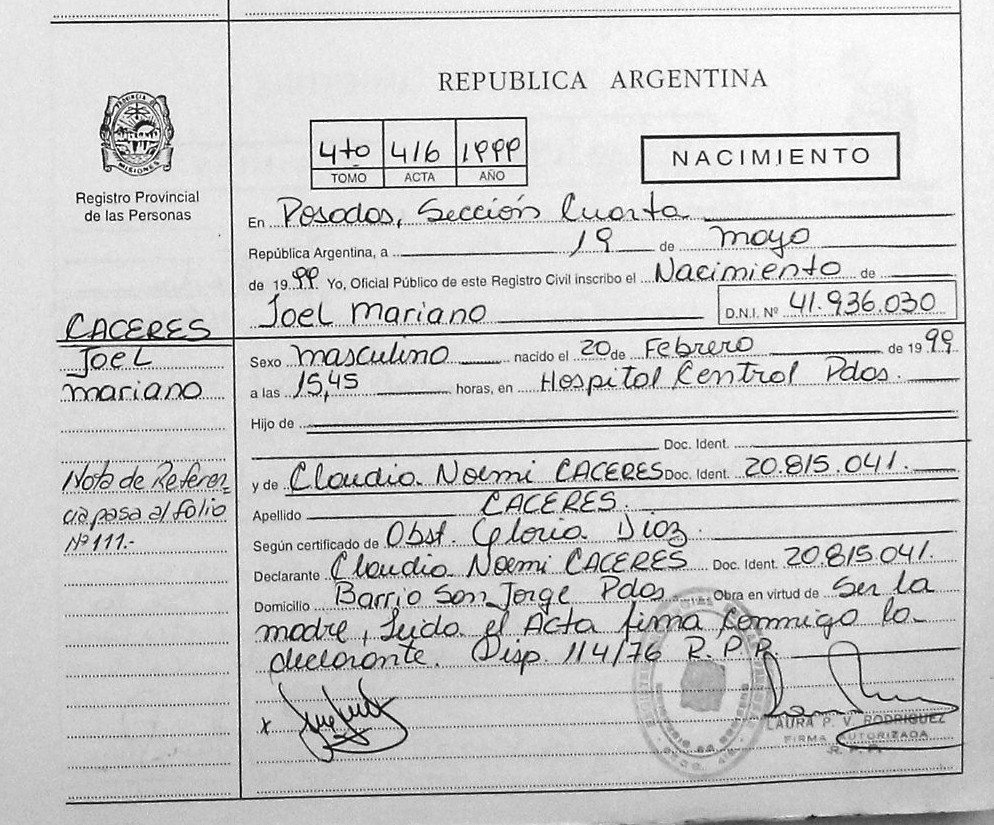 REPUBLICA ARGENTINA
PROVINCIA DE MISIONES
Registro Provincial
de las Personas
4to 416 1999
TOMO ACTA AÑO
NACIMIENTO
En Posadas, Sección Cuarta
República Argentina, a 19 de mayo
de 1999 Yo, Oficial Público de este Registro Civil inscribo el Nacimiento de
Joel Mariano D.N.I. Nº 41.936.030
CACERES
Joel
Mariano
Nota de Referen
cia pasa al folio
Nº 111.-
Sexo masculino nacido el 20 de Febrero de 1999
a las 15,45 horas, en Hospital Central Pdas.
Hijo de
Doc. Ident.
y de Claudia Noemi CACERES Doc. Ident. 20.815.041.
Apellido CACERES.
Según certificado de Obst. Gloria Diaz.
Declarante Claudia Noemi CACERES Doc. Ident. 20.815.041.
Domicilio Barrio San Jorge Pdas. Obra en virtud de Ser la
madre, Leida el Acta firma conmigo la
declarante. Disp. 114/76 R.P.P.
x
LAURA P. V. RODRIGUEZ
FIRMA AUTORIZADA
R. P. P.